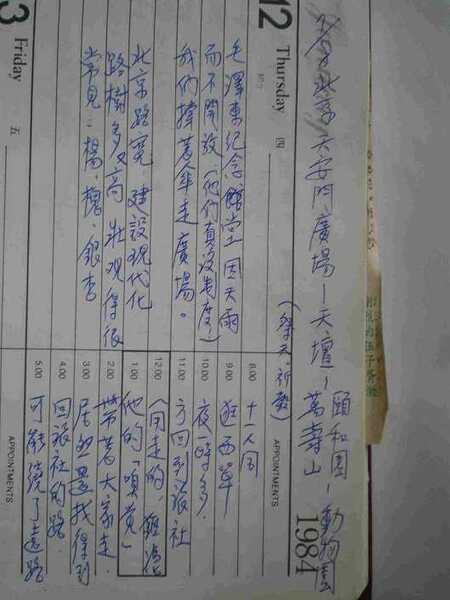 天安門廣場—天壇—頤和園,動物園
萬壽山
1984
(祭天、祈
12 Thursday 四
毛澤東紀念館堂因天雨
而不開放(他们真没制度)
我们撑着伞走廣場。
北京路寬,建設現代化
路樹多又高 壯观得很
常見:楊、槐、銀杏
3 Friday 五
APPOINTMENTS
8.00 十一人同
9.00 逛西單
10.00 夜一時多.
11.00 方回到旅社
12.00 (同走的,
1.00 他的「嗅覺」
2.00 帶着大家走.
3.00 居然還找得到
4.00 回旅社的路.
5.00 可能繞了遠路
APPOINTMENTS